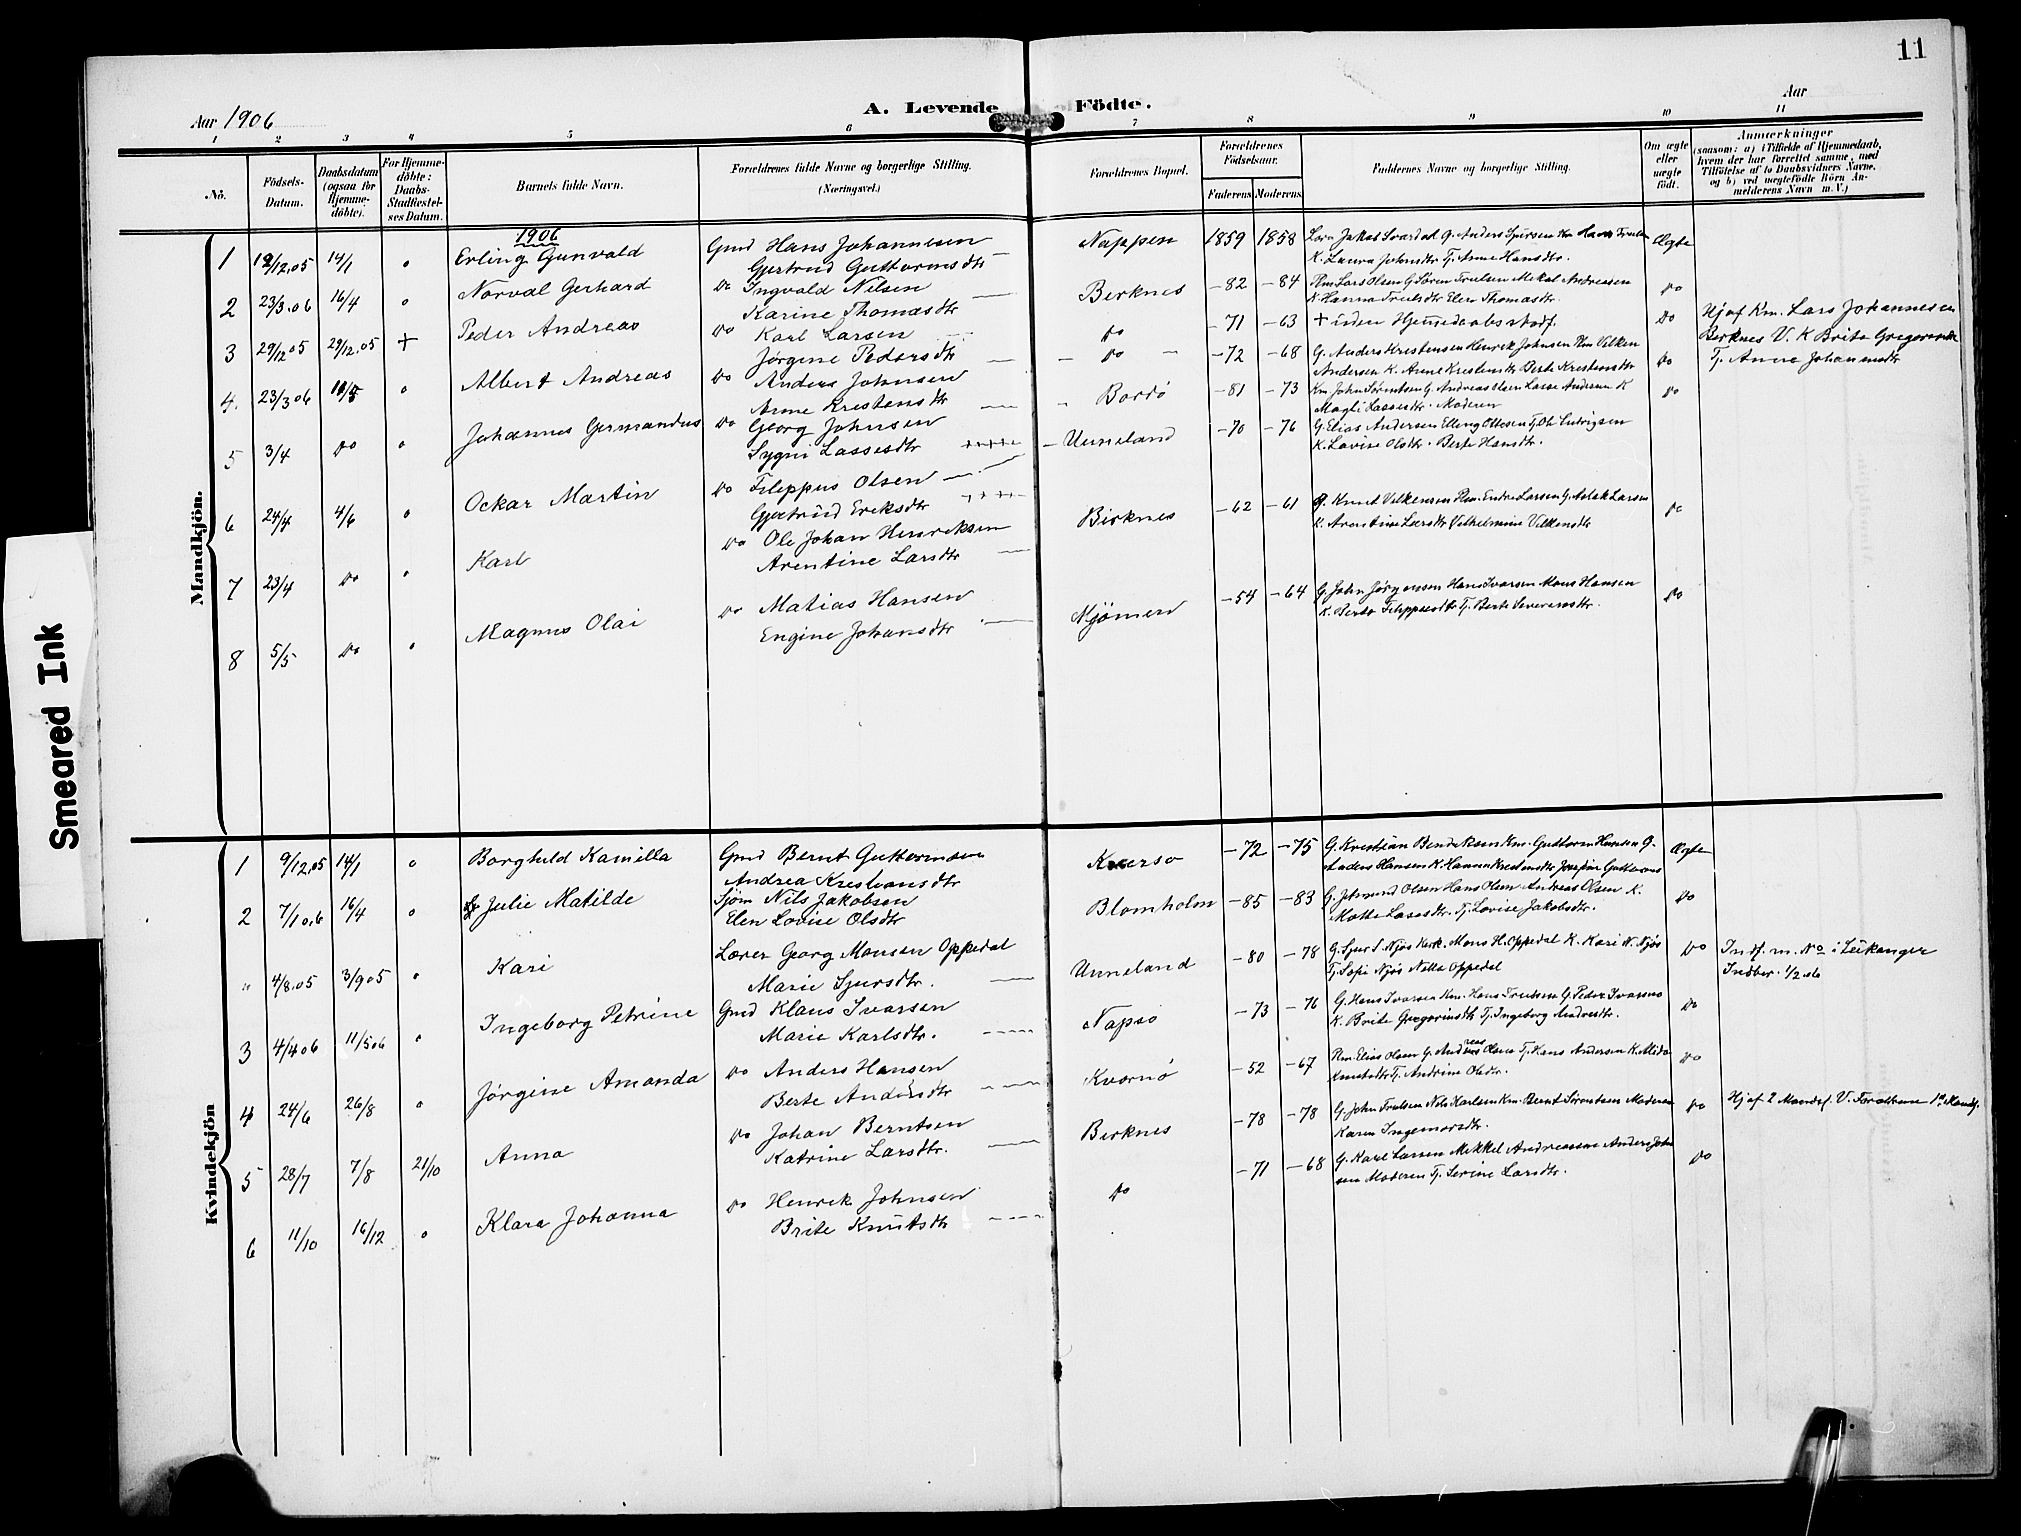 11
Aar 1906
A. Levende Födte.
Aar
1 2 3 4 5 6 7 8 9 10 11
No.
Födsels-Datum.
Daabsdatum (ogsaa for Hjemme-döbte).
For Hjemme-döbte: Daabs-Stadfæstel-ses Datum.
Barnets fulde Navn.
Forældrenes fulde Navne og borgerlige Stilling. (Næringsvei.)
Forældrenes Bopæl.
Forældrenes Födselsaar.
Faderens Moderens
Faddernes Navne og borgerlige Stilling.
Om ægte eller uægte födt.
Anmærkninger (saasom: a) i Tilfælde af Hjemmedaab, hvem der har forrettet samme, med Tilföielse af to Daabsvidners Navne, og b) ved uægtefödte Börn An-melderens Navn m. V.)
Mandkjön.
1906
1 12/12.05 14/1 o Erling Gunvald Gmd Hans Johannesen Nappen 1859 1858 Ægte
Gjertrud Guttormsdtr K. Laura Johnsdtr Tj. Anne Hansdtr.
2 23/3.06 16/4 o Norval Gerhard Do Ingvald Nilsen Birknes -82 -84 Pm Lars Olsen G Søren Trulsen Mikal Andreasen Do
Karine Thomasdtr K Hanna Trulsdtr Elen Thomasdtr.
3 29/12 05 29/12.05 + Peder Andreas Do Karl Larsen Do -71 -63 + uden Hjemmedaabs stadf. Do Hj af Km. Lars Johannesen
Jørgine Pedersdtr Birknes V. K Brita Gregoriusdtr
Tj. Anne Johannesdtr
4. 23/3 06 10/5 o Albert Andreas Do Anders Johnsen Do -72 -68 G. Anders Kristensen Henrik Johnsen Pm Vilken Do
Anne Kristensdtr Andersen K. Anne Kristensdtr Berte Kristensdtr
5 3/4 Do o Johannes Germandus Do Georg Johnsen Bordø -81 -73 Km John Sørentsen G. Andreas Lasse Andersen K Do
Sygni Lassesdtr Magli Lassesdtr. Moderen
6 24/4 4/6 o Ockar Martin Do Filippus Olsen Unneland -70 -76 G. Elias Andersen Elling Ottesen Tj. Ole Ludvigsen
Gjertrud Eriksdtr K. Lovise Olsdtr. Berte Hansdtr.
7 23/4 Do o Karl Do Ole Johan Henriksen Birknes -62 -61 G. Knut Vilkensen Pm. Endre Larsen G. Aslak Larsen Do
Arentine Larsdtr K. Arentine Larsdtr Vilhelmine Vilkensdtr
8 5/5 Do o Magnus Olai Do Matias Hansen Mjömen -54 -64 G. John Jørgensen Hans Ivarsen Mons Hansen Do
Engine Johansdtr K. Berte Filippusdtr Tj. Berte Severinsdtr.
Kvindekjön
1 9/12.05 14/1 o Borghild Kamilla Gmd Bernt Guttormsen Kversø -72 -75 G. Kristian Bendiksen Km. Guttorm Hansen G. Ægte
Andrea Kristiansdtr Anders Hansen K. Hanna Kristensdtr Josefine Guttorms
2 7/1 0.6 16/4 o Julie Matilde Sjøm Nils Jakobsen Blomholm -85 -83 Olsen Hans Olsen Andreas Olsen K. Do
Elen Lovise Olsdtr Motte Lassesdtr. Tj. Lovise Jakobsdtr.
" 4/8.05 3/9 05 o Kari Lærer Georg Monsen Oppedal Unneland -80 -78 G. Sjur S. Njøs Kirk. Mons H. Oppedal K. Kari N. Njøs Do Indf. m. No i Leikanger
Marie Sjursdtr. Tj. Sofi Njøs Oppedal Indber. 1/2.06
3 4/4 06 11/5 06 o Ingeborg Petrine Gmd Klaus Ivarsen Napsø -73 -76 G. Hans Ivarsen Km. Hans Trulsen G. Peder Ivarsen Do
Marie Karlsdtr. K. Brite Gregoriusdtr Tj. Ingeborg Andresdtr.
4 24/6 26/8 o Jørgine Amanda Do Anders Hansen Kvernø -52 -67 Pm. Elias Olsen G. Andreas Olsen Tj. Hans Andersen K. Do
Berte Andersdtr Knutsdtr Tj. Andrine Olsdtr.
5 28/7 7/8 21/10 Anna Do Johan Berntsen Birknes -78 -78 G. John Trulsen Nils Karlsen Km. Bernt Sørentsen Moderen Do Hj af Z Mandsf. V. Forældrene
Katrine Larsdtr. Karen Ingemarsdtr.
6 11/10 16/12 o Klara Johanna Do Henrik Johnsen Do -71 -68 G. Karl Larsen Mikkel Andreassen Anders John Do
Brite Knutsdtr sen Moderen Tj. Serine Larsdtr.
Smeared Ink